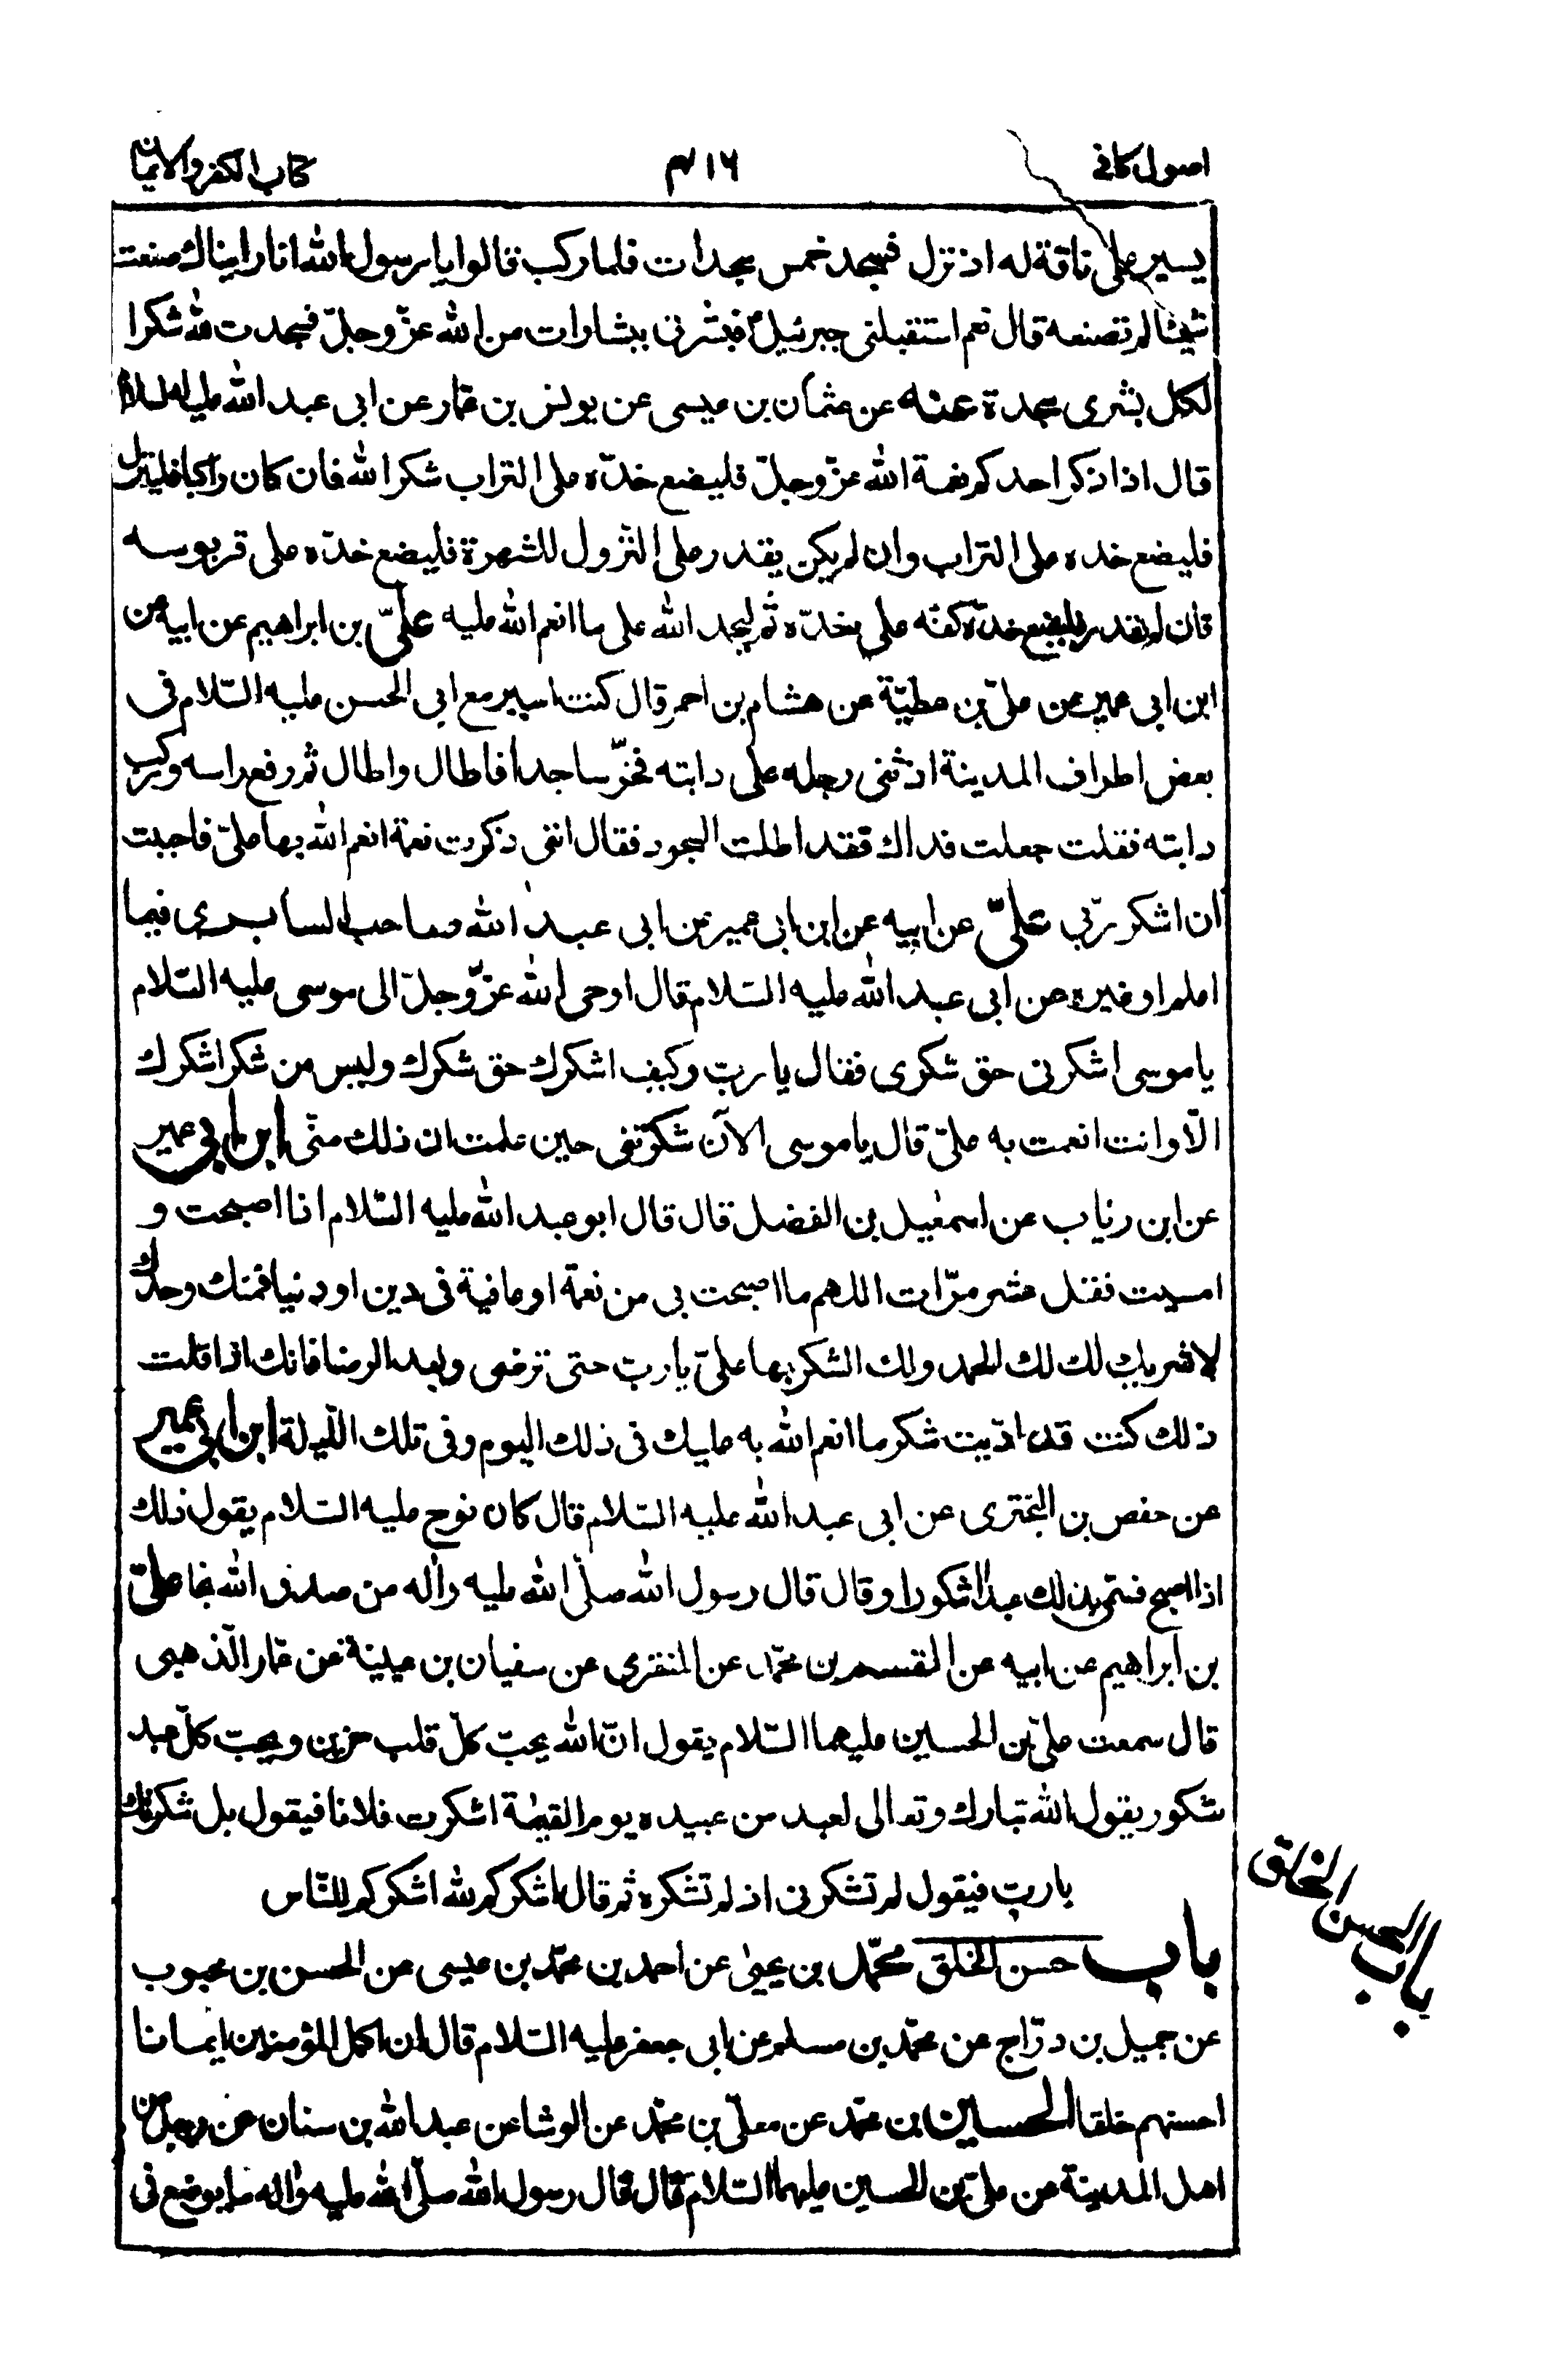 اصول كافي ٤١٦ كتاب الكفر والايمان
يسير على ناقة له اذ نزل فسجد خمس سجدات فلما ركب قالوا يا رسول الله انا رايناك صنعت
شيئا لم تصنعه قال نعم استقبلني جبرئيل فبشرني ببشارات من الله عزّ وجلّ فسجدت لله شكرا
لكل بشرى سجدة عنه عن عثمان بن عيسى عن يونس بن عمار عن ابى عبد الله عليه السلام
قال اذا ذكر احدكم نعمة الله عزّ وجلّ فليضع خدّه على التراب شكرا لله فان كان راكبا فلينزل
فليضع خده على التراب وان لم يكن يقدر على النزول للشهرة فليضع خدّه على قربوسه
فان لم يقدر فليضع خدّه كفّه على خدّه ثم ليحمد الله على ما انعم الله عليه علىّ بن ابراهيم عن ابيه عن
ابن ابى عمير عن علىّ بن عطيّة عن هشام بن احمر قال كنت اسير مع ابى الحسن عليه السّلام فى
بعض اطراف المدينة اذ ثنى رجله على دابته فخرّ ساجدا فاطال واطال ثم رفع راسه وركب
دابته فقلت جعلت فداك قد اطلت السجود فقال اننى ذكرت نعمة انعم الله بها علىّ فاحببت
ان اشكر ربّي علىّ عن ابيه عن ابن ابى عمير عن ابى عبد الله صاحب السابرى فيما
اعلم او غيره عن ابى عبد الله عليه السّلام قال اوحى الله عزّ وجلّ الى موسى عليه السّلام
يا موسى اشكرنى حق شكرى فقال يا ربّ وكيف اشكرك حق شكرك وليس من شكر اشكرك
الّا وانت انعمت به علىّ قال يا موسى الآن شكرتنى حين علمت ان ذلك منّى ابن ابى عمير
عن ابن رئاب عن اسمعيل بن الفضل قال قال ابو عبد الله عليه السّلام اذا اصبحت و
امسيت فقل عشر مرّات اللهم ما اصبحت بى من نعمة او عافية فى دين او دنيا فمنك وحدك
لا شريك لك لك الحمد ولك الشكر بها علىّ يا ربّ حتى ترضى وبعد الرضا فانك اذا قلت
ذلك كنت قد ادّيت شكر ما انعم الله به عليك فى ذلك اليوم وفى تلك اللّيلة ابن ابى عمير
عن حفص بن البخترى عن ابى عبد الله عليه السّلام قال كان نوح عليه السّلام يقول ذلك
اذا اصبح فسمّى بذلك عبدا شكورا وقال قال رسول الله صلّى الله عليه واله من صدق الله نجا علىّ
بن ابراهيم عن ابيه عن القسم بن محمّد عن المنقرى عن سفيان بن عيينة عن عمّار الدّهنى
قال سمعت علىّ بن الحسين عليهما السّلام يقول انّ الله يحبّ كلّ قلب حزين ويحبّ كلّ عبد
شكور يقول الله تبارك وتعالى لعبد من عبيده يوم القيمة اشكرت فلانا فيقول بل شكرتك
يا ربّ فيقول لم تشكرنى اذ لم تشكره ثم قال اشكركم لله اشكركم للنّاس
باب حسن الخلق محمّد بن يحيى عن احمد بن محمّد بن عيسى عن الحسن بن محبوب
عن جميل بن درّاج عن محمّد بن مسلم عن ابى جعفر عليه السّلام قال ان اكمل المؤمنين ايمانا
احسنهم خلقا الحسين بن محمّد عن معلّى بن محمّد عن الوشا عن عبد الله بن سنان عن رجل من
اهل المدينة عن علىّ بن الحسين عليهما السّلام قال قال رسول الله صلّى الله عليه واله ما يوضع فى
باب الحسن الخلق